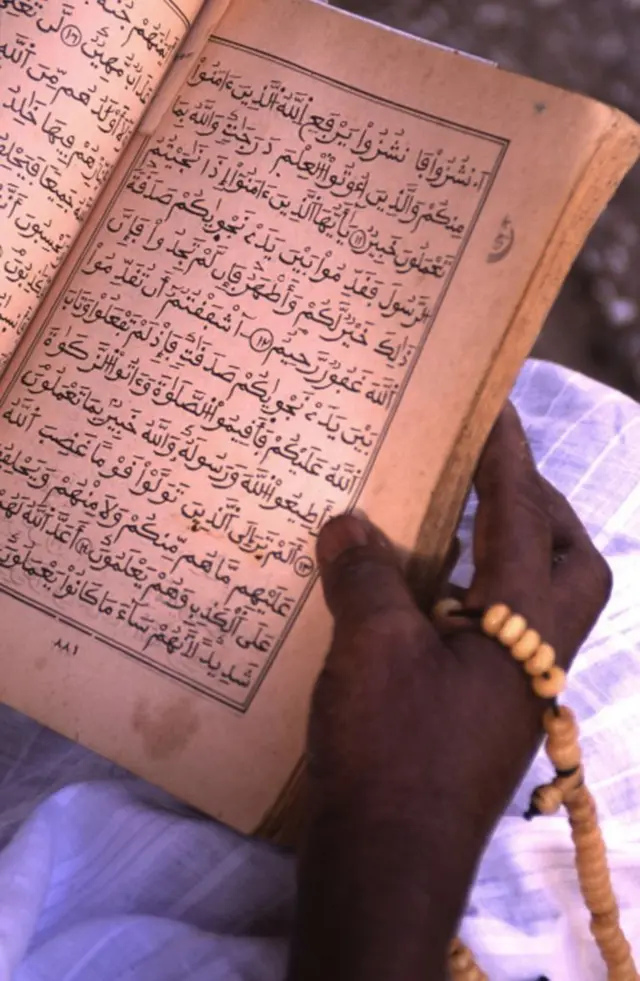 ٱنشُزُوا۟ فَٱنشُزُوا۟ يَرْفَعِ ٱللَّهُ ٱلَّذِينَ ءَامَنُوا۟
مِنكُمْ وَٱلَّذِينَ أُوتُوا۟ ٱلْعِلْمَ دَرَجَٰتٍ وَٱللَّهُ بِمَا
تَعْمَلُونَ خَبِيرٌ ١١ يَٰٓأَيُّهَا ٱلَّذِينَ ءَامَنُوٓا۟ إِذَا نَٰجَيْتُمُ
ٱلرَّسُولَ فَقَدِّمُوا۟ بَيْنَ يَدَىْ نَجْوَىٰكُمْ صَدَقَةً
ذَٰلِكَ خَيْرٌ لَّكُمْ وَأَطْهَرُ فَإِن لَّمْ تَجِدُوا۟ فَإِنَّ
ٱللَّهَ غَفُورٌ رَّحِيمٌ ١٢ ءَأَشْفَقْتُمْ أَن تُقَدِّمُوا۟
بَيْنَ يَدَىْ نَجْوَىٰكُمْ صَدَقَٰتٍ فَإِذْ لَمْ تَفْعَلُوا۟ وَتَابَ
ٱللَّهُ عَلَيْكُمْ فَأَقِيمُوا۟ ٱلصَّلَوٰةَ وَءَاتُوا۟ ٱلزَّكَوٰةَ
وَأَطِيعُوا۟ ٱللَّهَ وَرَسُولَهُۥ وَٱللَّهُ خَبِيرٌۢ بِمَا تَعْمَلُونَ
١٣ أَلَمْ تَرَ إِلَى ٱلَّذِينَ تَوَلَّوْا۟ قَوْمًا غَضِبَ ٱللَّهُ
عَلَيْهِم مَّا هُم مِّنكُمْ وَلَا مِنْهُمْ وَيَحْلِفُونَ
عَلَى ٱلْكَذِبِ وَهُمْ يَعْلَمُونَ ١٤ أَعَدَّ ٱللَّهُ لَهُمْ
شَدِيدًا إِنَّهُمْ سَآءَ مَا كَانُوا۟ يَعْمَلُونَ
٨٨١
جُنَّةً
مُّهِينٌ ١٦ لَّن
هُم مِّنَ ٱللَّهِ
هُمْ فِيهَا خَٰلِدُ
جَمِيعًا فَيَحْلِفُ